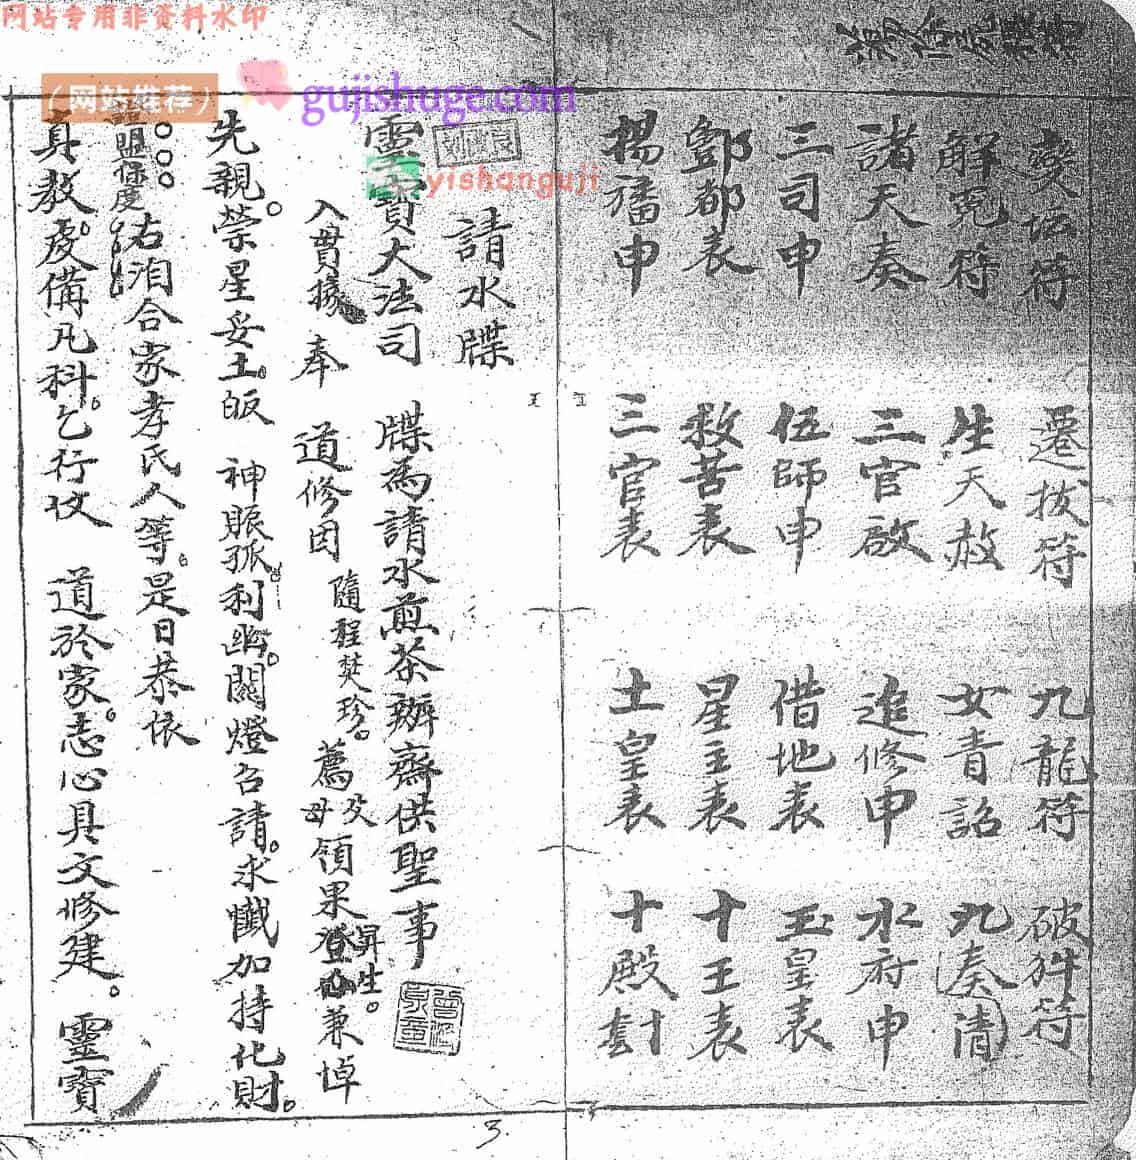 网站专用非资料水印
(网站推荐)
gujishuge.com
yishanguji
奠坛符 遷拔符 九龍符 破狱符
解冤符 生天赦 女青詔 九奏清
諸天奏 三官啟 追修申 水府申
三司申 伍師申 借地表 玉皇表
酆都表 救苦表 星主表 十王表
揚旛申 三官表 土皇表 十殿
請水牒
靈寶大法司 牒為請水煎茶辦齋供聖事
入貫據 奉 道修因 隨程焚珍。薦 及母 領果登山 昇生。兼悼
先親。榮星妥土。皈 神賑孤。利幽。關燈召請。求懺加持化財。
盟保度 右洎合家孝氏人等。是日恭依
真教。虔備凡科。乞行文 道於家。志心具文修建。靈寶
3.